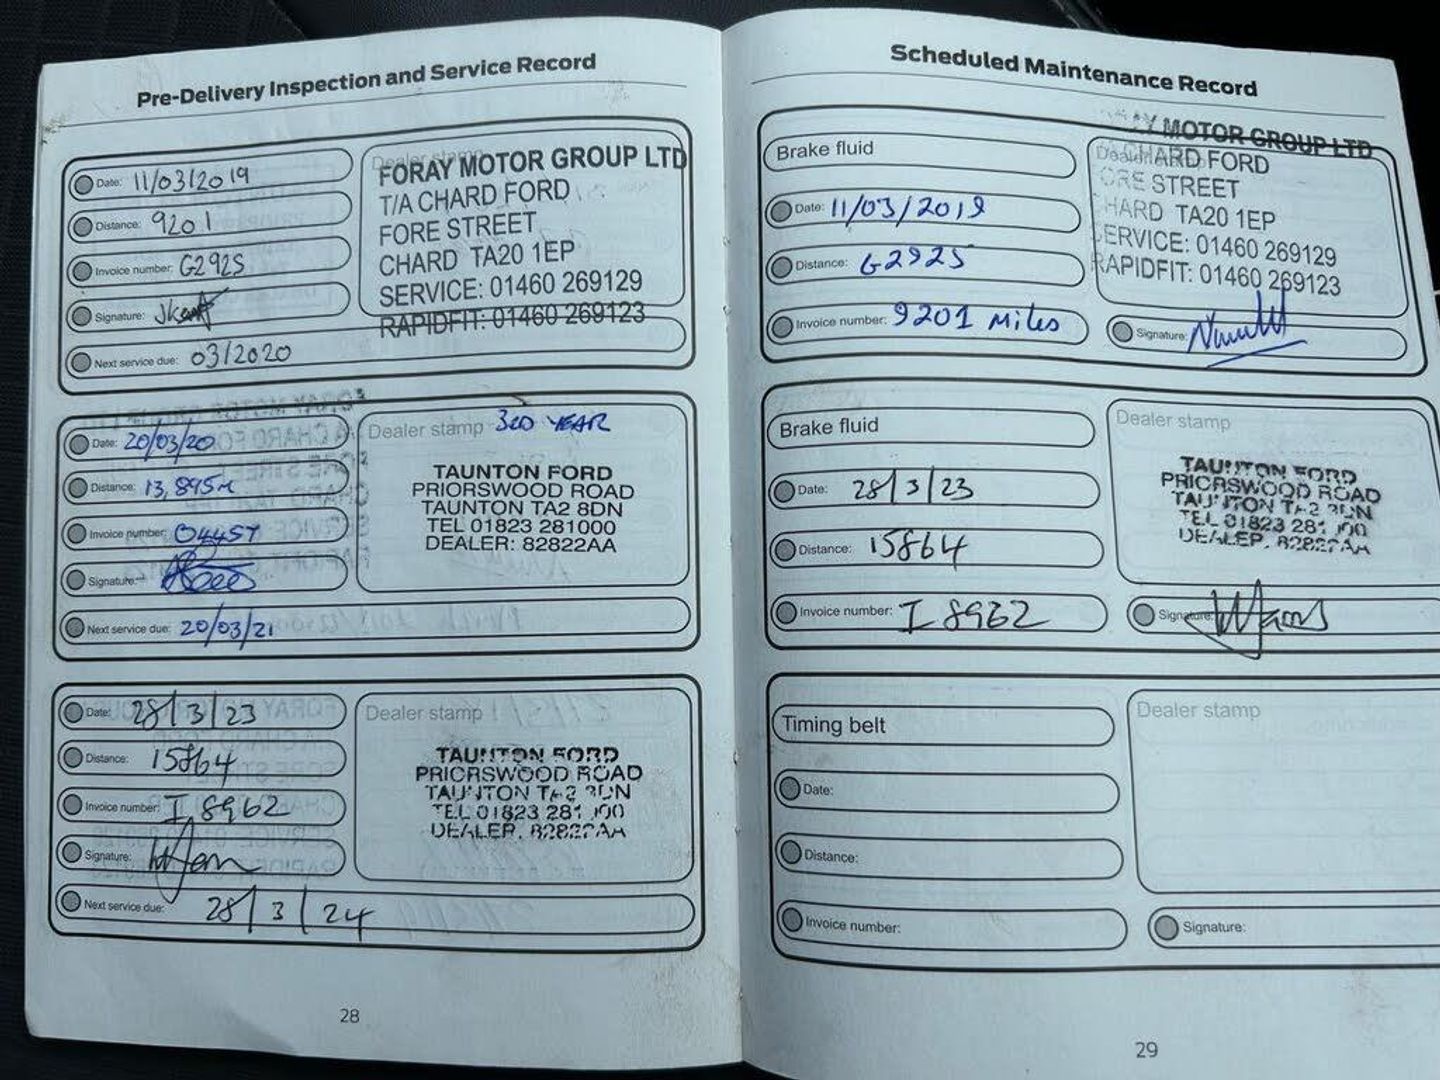 Pre-Delivery Inspection and Service Record
Date: 11/03/2019
Distance: 9201
Invoice number: G2925
Signature:
Next service due: 03/2020
Dealer stamp
FORAY MOTOR GROUP LTD
T/A CHARD FORD
FORE STREET
CHARD TA20 1EP
SERVICE: 01460 269129
RAPIDFIT: 01460 269123
Date: 20/03/20
Distance: 13,895M
Invoice number: 04457
Signature:
Next service due: 20/03/21
Dealer stamp 3RD YEAR
TAUNTON FORD
PRIORSWOOD ROAD
TAUNTON TA2 8DN
TEL 01823 281000
DEALER: 82822AA
Date: 28/3/23
Distance: 15864
Invoice number: I 8962
Signature:
Next service due: 28/3/24
Dealer stamp
TAUNTON FORD
PRIORSWOOD ROAD
TAUNTON TA2 8DN
TEL 01823 281000
DEALER. 82822AA
28
Scheduled Maintenance Record
Brake fluid
Date: 11/03/2019
Distance: G2925
Invoice number: 9201 Miles
Dealer
FORAY MOTOR GROUP LTD
CHARD FORD
FORE STREET
CHARD TA20 1EP
SERVICE: 01460 269129
RAPIDFIT: 01460 269123
Signature:
Brake fluid
Date: 28/3/23
Distance: 15864
Invoice number: I 8962
Dealer stamp
TAUNTON FORD
PRIORSWOOD ROAD
TAUNTON TA2 8DN
TEL 01823 281000
DEALER. 82822AA
Signature:
Timing belt
Date:
Distance:
Invoice number:
Dealer stamp
Signature:
29